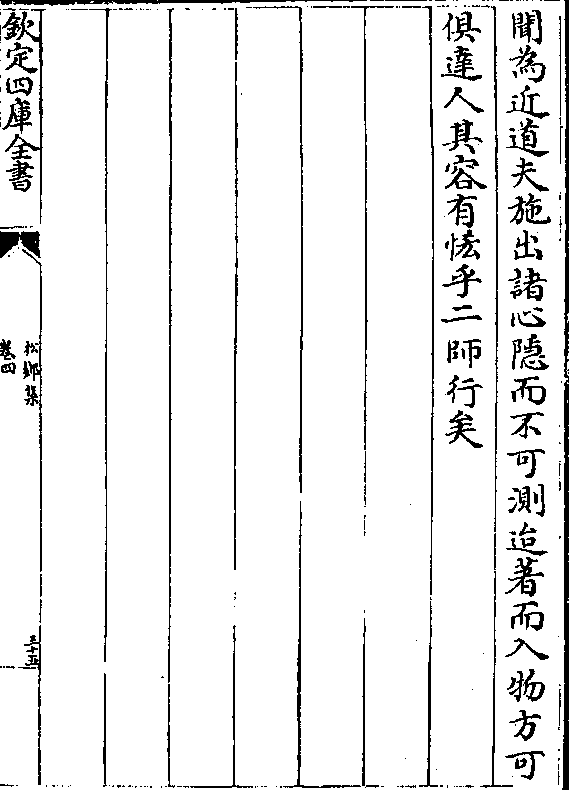 聞為近道夫施出諸心隱而不可測迨著而入物方可
俱達人其容有恡乎二師行矣
欽定四庫全書
松鄉集
卷四
三十五